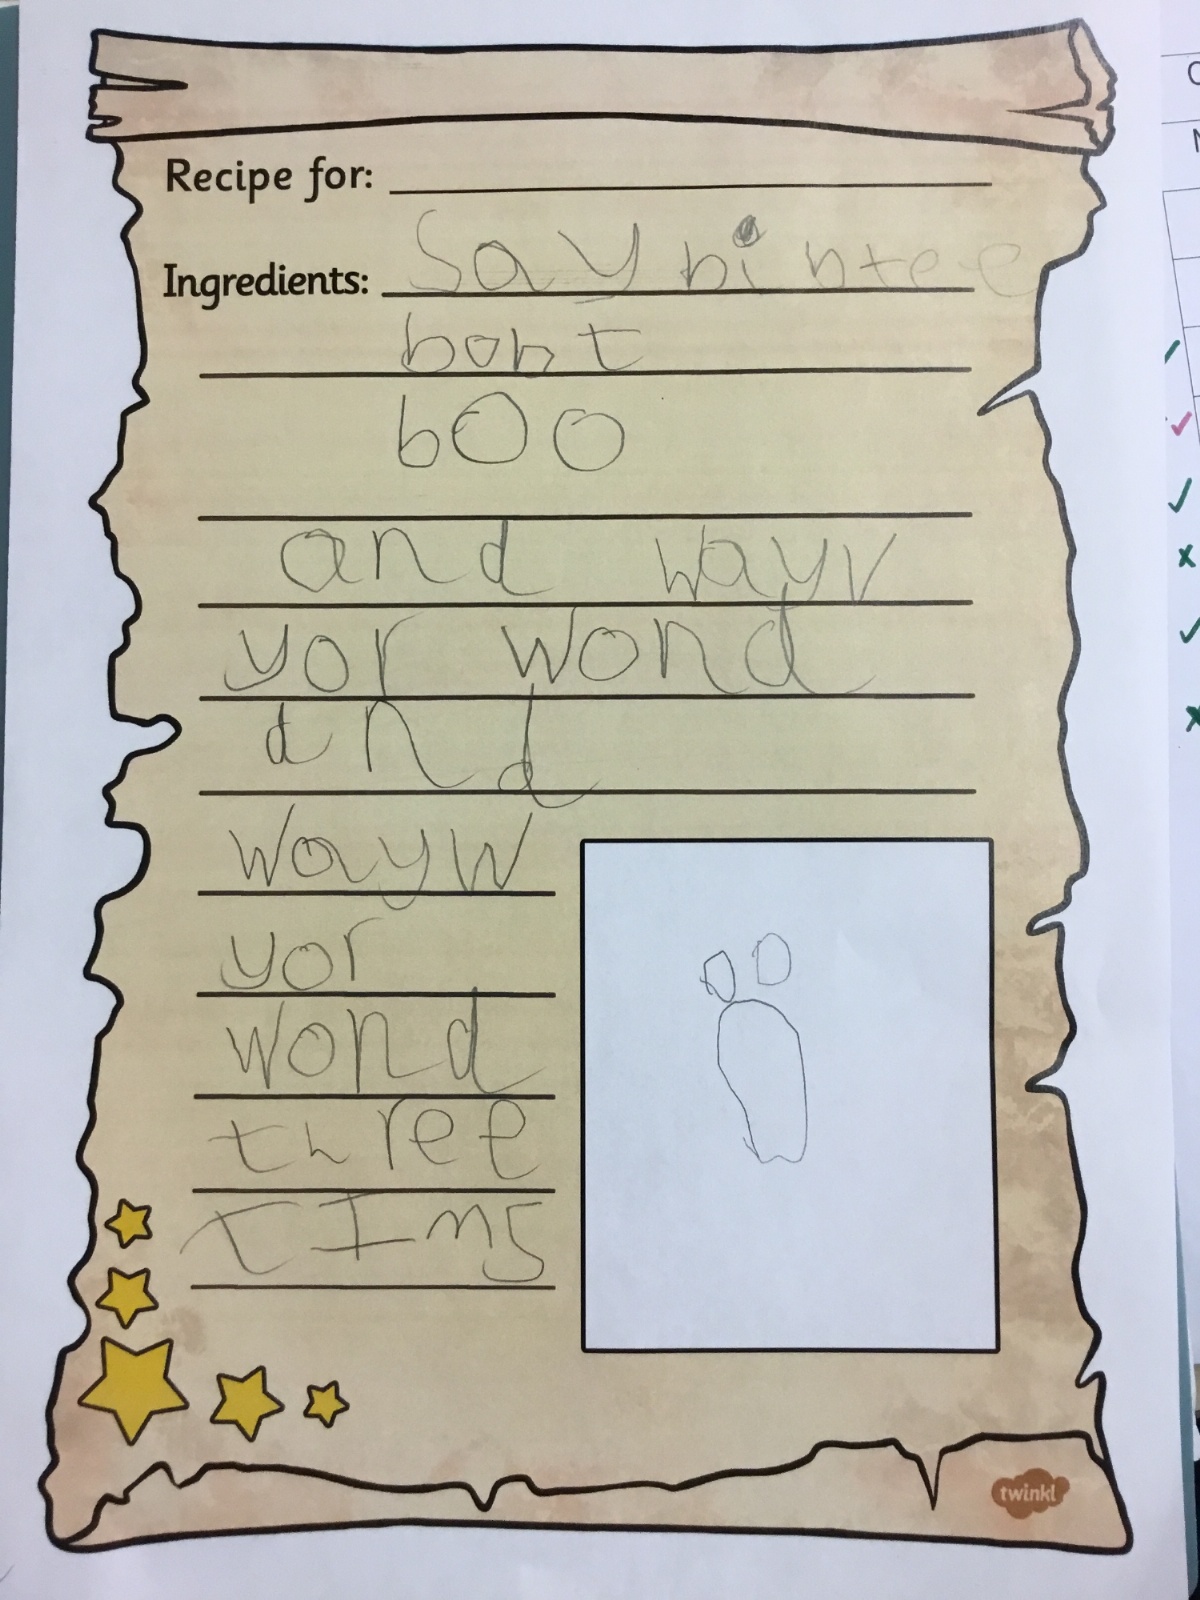 Recipe for:
Ingredients: Say bi btee
boht
boo
and wayv
yor wond
and
wayw
yor
wond
three
tIms
twinkl